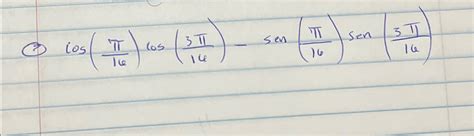 ⑦ cos(π/16) cos(3π/16) - sen(π/16) sen(3π/16)